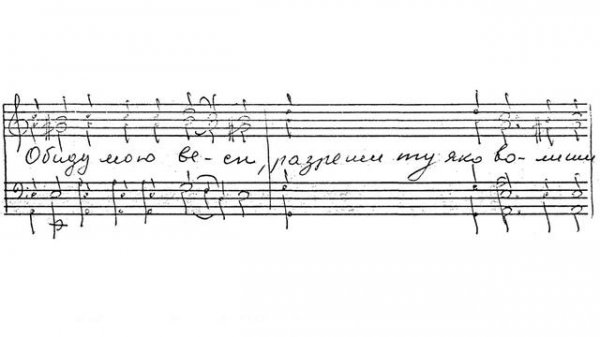 Обиду мою ве-си, разреши ту яко во-лиши